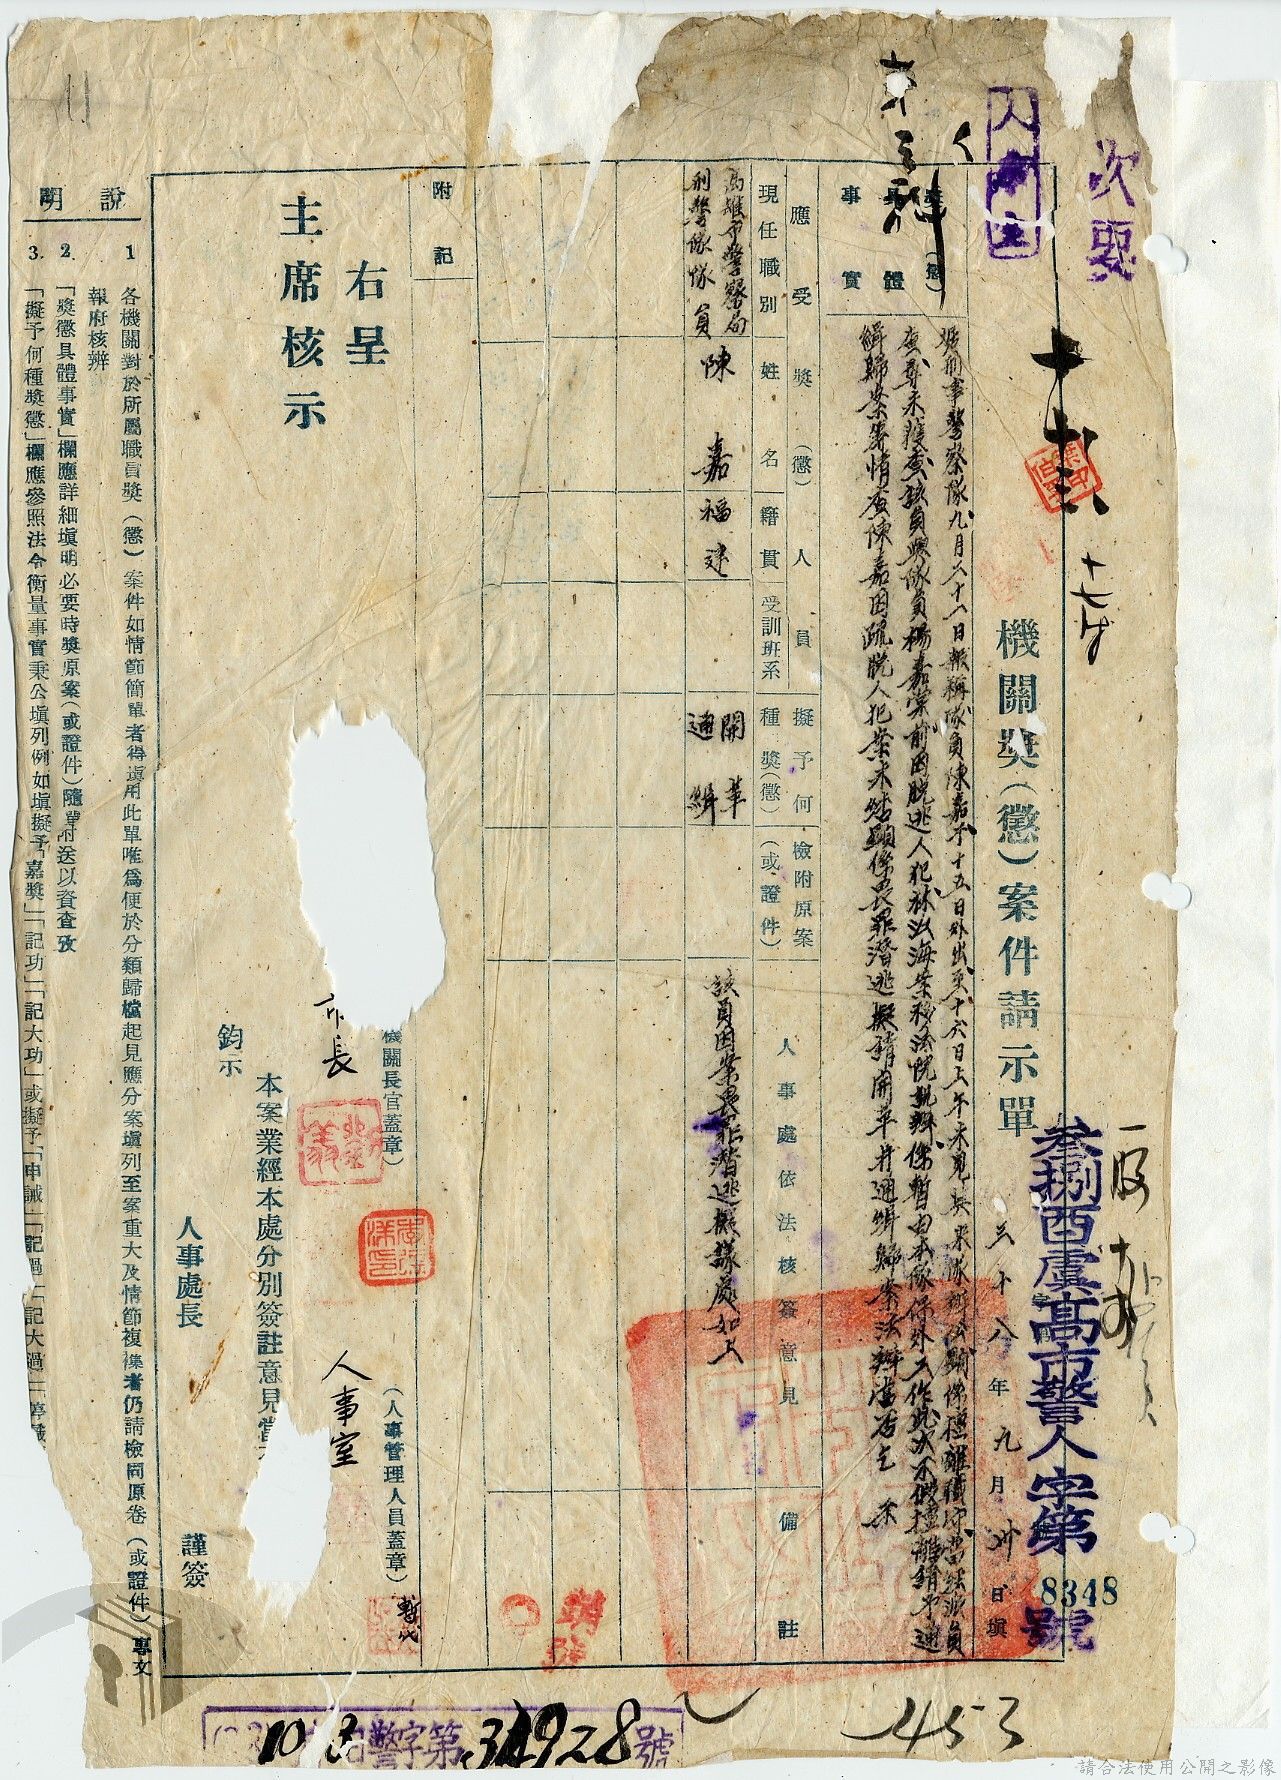 次要
人事室
十七
叁捌酉虞高市警人字第8348號
機關獎(懲)案件請示單
三十八年九月卅日填
獎(懲)
具體
事實
據刑事警察隊九月二十一日報稱隊員陳嘉于十五日外出至十六日上午未見其來隊辦公顯係擅離職守當經派員
查尋未獲查該員與隊員楊嘉棠前因脫逃人犯林汝海案移法院
緝歸案等情查陳嘉因疏脫人犯案未結顯係畏罪潛逃擬請開革并通緝歸案法辦當否乞 示
應受獎(懲)人員
現任職別
姓名
籍貫
受訓班系
擬予何
種獎(懲)
檢附原案
(或證件)
人事處依法核簽意見
備註
高雄市警察局
刑警隊隊員
陳嘉
福建
開革
通緝
該員因案畏罪潛逃擬議處如上
附記
右呈
主席核示
機關長官蓋章)
市長
(人事管理人員蓋章)
人事室
暫代
本案業經本處分別簽註意見當
鈞示
人事處長
謹簽
說明
1 各機關對於所屬職員獎(懲)案件如情節簡單者得填用此單唯為便於分類歸檔起見應分案填列至案重大及情節複雜者仍請檢同原卷(或證件)專文
報府核辦
2.「獎懲具體事實」欄應詳細填明必要時獎原案(或證件)隨單附送以資查攷
3.「擬予何種獎懲」欄應參照法令衡量事實秉公填列例如填擬予「嘉獎」「記功」「記大功」或擬予「申誡」「記過」「記大過」「停職
453
警字第31928號
請合法使用公開之影像